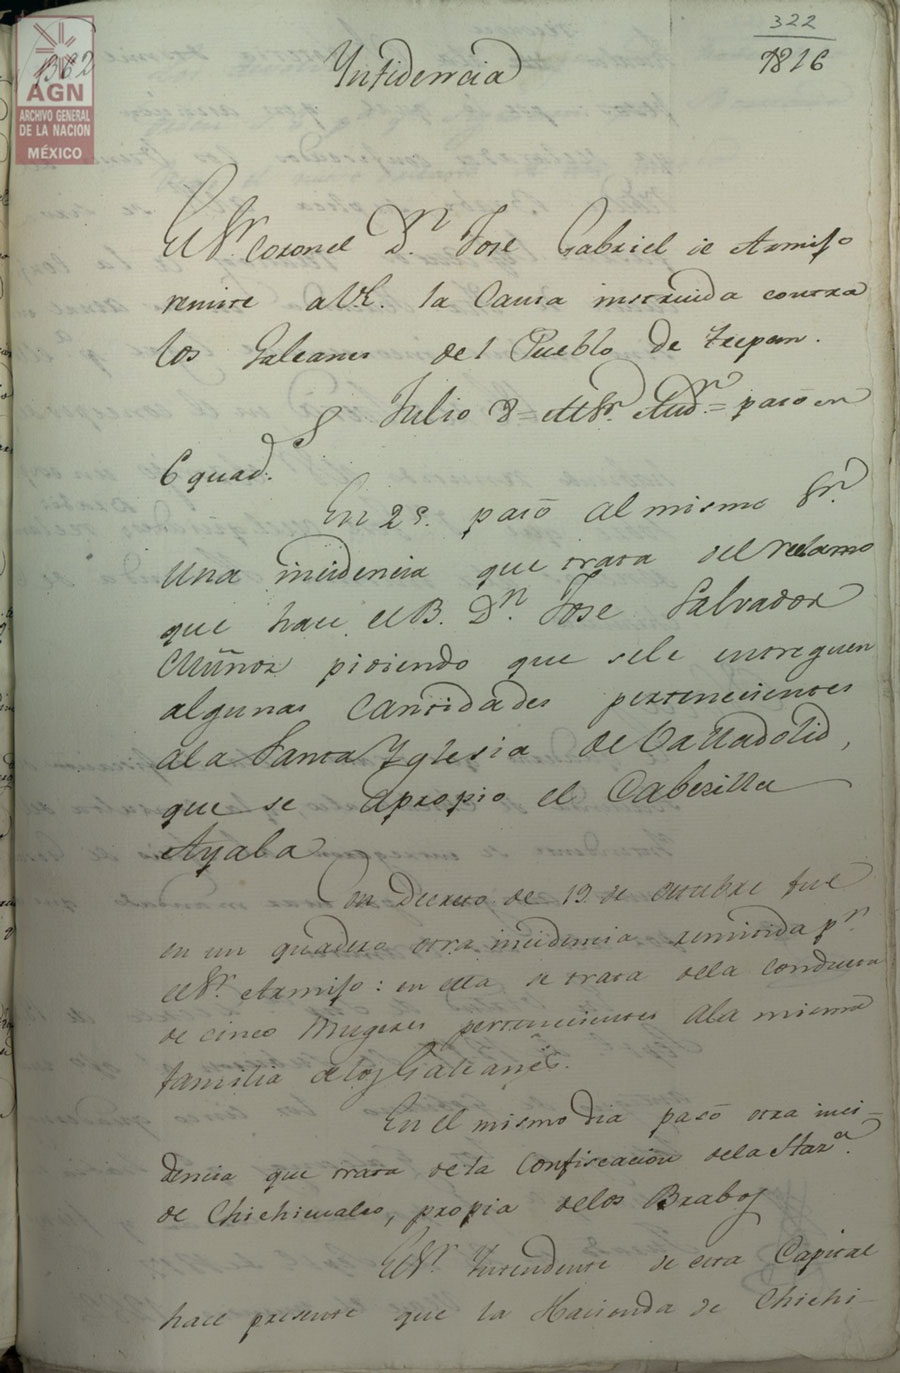 322
1816
1362
AGN
ARCHIVO GENERAL
DE LA NACION
MÉXICO
Ynfidencia
El Sr. Coronel Dn. Jose Gabriel de Armijo
remite a V.E. la Causa instruida contra
los Galeanes del Pueblo de Tecpan.
Julio 8 = Al Sr. Audr. = pasó en
6 quad.
En 29. pasó al mismo Sr.
una incidencia que trata del reclamo
que hace el B. Dn. Jose Salvador
Muñoz pidiendo que sele entreguen
algunas Cantidades pertenecientes
ala Santa Yglesia de Valladolid,
que se apropio el Cabezilla
Ayala
En Decreto de 19 de Octubre fue
en un quaderno otra incidencia remitida pr.
el Sr. Armijo: en ella se trata dela conducta
de cinco Mugeres pertenecientes ala misma
familia delos Galeanes.
En el mismo dia pasó otra inci-
dencia que trata de la Confiscacion dela Haz.a
de Chichiualco, propia delos Brabos
El Sr. Yntendente de esta Capital
hace presente que la Hacienda de Chichi-